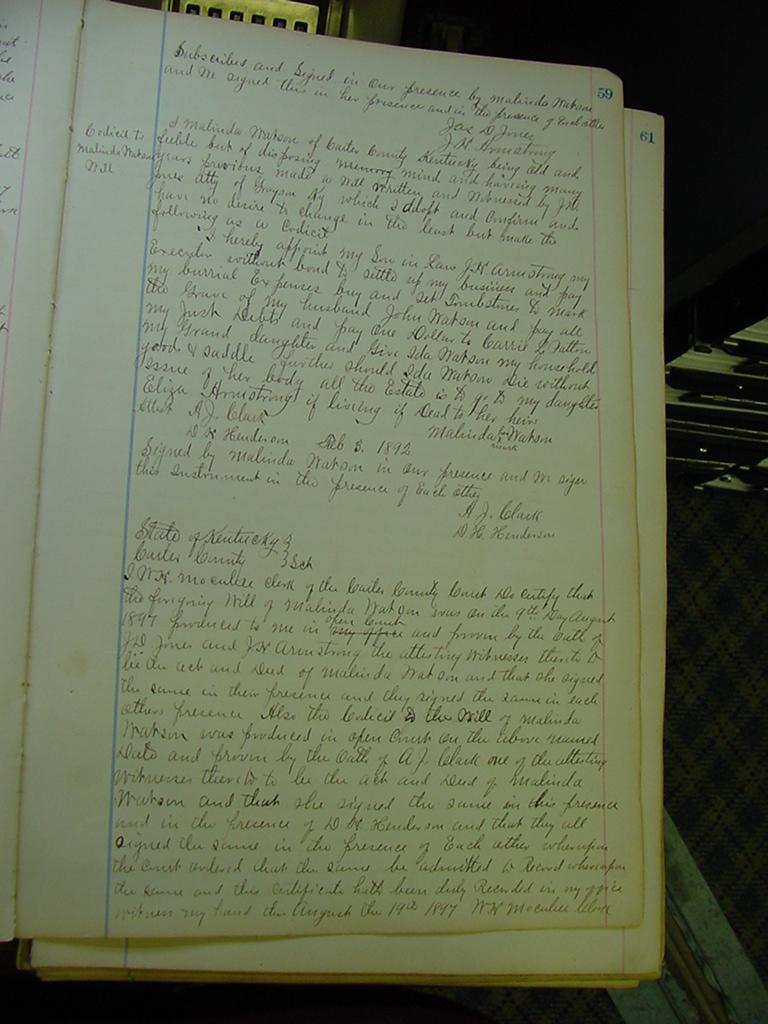 59
61
Subscribed and Signed in Our presence by Malinda Watson
and We signed this in her presence and in the presence of Each other
Jas D Jones
J. H. Armstrong
Codicil to
Malinda Watson
Will
I Malinda Watson of Carter County Kentucky being old and
feeble but of disposing memory mind and haveing many
years previous made a Will Written and Witnessed by J.D.
Jones Atty of Grayson Ky which I adopt and Confirm and
have no desire to change in the least but make the
following as a Codicil
I hereby appoint my Son in Law J.H Armstrong my
Executor without bond to settle up my business and pay
my burrial Expenses buy and Set Tombstones to mark
the Grave of my husband John Watson and pay all
my Just Debts and pay One Dollar to Carrie L Patton
my Grand daughter and Give Ida Watson my household
goods & saddle further should Ida Watson Die without
issue of her body all the Estate is to go to my daughter
Eliza Armstrong if liveing if Dead to her heirs
Attest A J. Clark
D H Henderson Feb 3. 1892 Malinda her Watson
mark
Signed by Malinda Watson in Our presence and We sign
this Instrument in the presence of Each other
A J. Clark
D. H. Henderson
State of Kentucky }
Carter County } Sct
I W.H. Mocabee Clerk of the Carter County Court Do Certify that
the foregoing Will of Malinda Watson was on the 9th Day August
1897 produced to me in my office open Court and proven by the Oath of
J D. Jones and J.H Armstrong the attesting Witnesses thereto to
be the act and Deed of Malinda Watson and that she signed
the same in their presence and they signed the same in each
others presence Also the Codicil to the Will of Malinda
Watson was produced in open Court On the above named
Date and proven by the Oath of A J. Clark one of the attesting
Witnesses thereto to be the act and Deed of Malinda
Watson and that she signed the same in his presence
and in the presence of D H Henderson and that they all
signed the same in the presence of Each other whereupon
the Court ordered that the same be admitted to Record whereupon
the same and this Certificate hath been duly Recorded in my office
witness my hand this August the 19th 1897 W H Mocabee Clerk